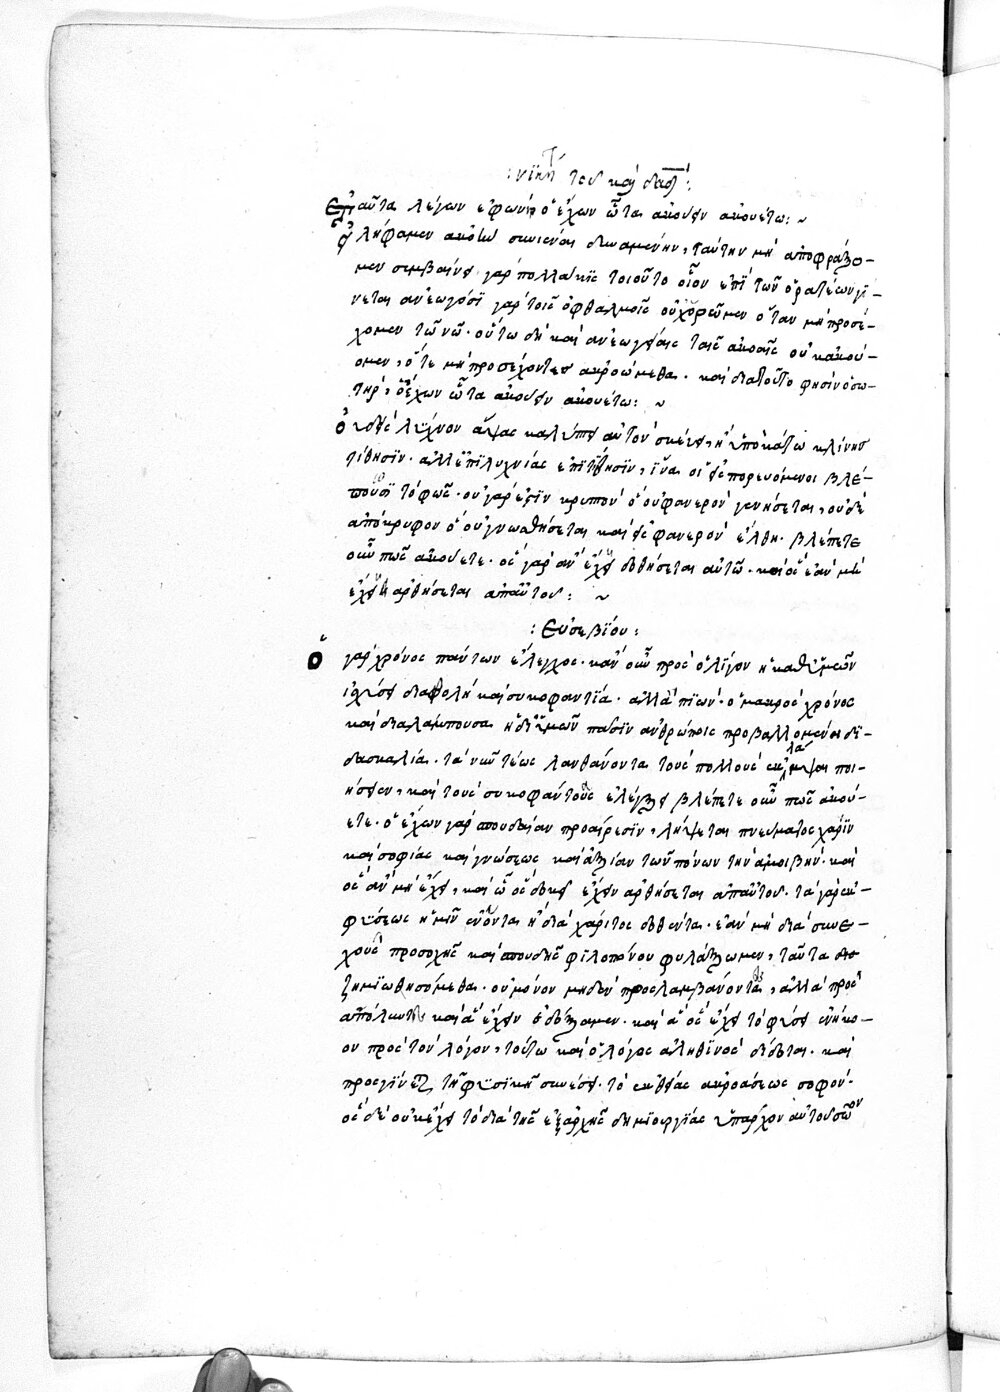 : νϊκή τοῦ καὶ δαδ :
ταῦτα λέγων ἐφώνει ὁ ἔχων ὦτα ἀκούειν ἀκουέτω : ~
εἰλήφαμεν ἀκοὴν συνιέναι δυναμένην, ταύτην μὴ ἀποφράξο-
μεν συμβαίνει γὰρ πολλάκις τοιοῦτο οἷον ἐπὶ τῶν ὁρατέων γί-
νεται ἀνεωγόσϊ γὰρ τοῖς ὀφθαλμοῖς οὐχ ὁρῶμεν ὅταν μὴ προσέ-
χομεν τῶ νῶ· οὕτω δὴ καὶ ἀνεωγυίαις ταῖς ἀκοαῖς οὐκ ἀκού-
ομεν, ὅτε μὴ προσέχοντες ἀκροώμεθα. καὶ διατοῦτο φησὶν ὁ σω-
τὴρ, ὁ ἔχων ὦτα ἀκούειν ἀκουέτω : ~
ὁυδεὶς λύχνον ἅψας καλύπτει αὐτὸν σκεύει, ἢ ὑποκάτω κλίνης
τίθησϊν. ἀλλ ἐπϊ λυχνίας ἐπιτίθησϊν, ἵνα οἱ εἰσπορευόμενοι βλέ-
πουσϊ τὸ φῶς. οὐ γάρ ἐστϊν κρυπτὸν ὃ οὐ φανερὸν γενήσεται, οὐδὲ
ἀπόκρυφον ὃ οὐ γνωσθήσεται καὶ εἰς φανερὸν ἔλθη. βλέπετε
οὖν πῶς ἀκούετε. ὃς γὰρ ἂν ἔχει δοθήσεται αὐτῶ. καὶ ὃς ἐὰν μὴ
ἔχει ἀρθήσεται ἀπαὐτοῦ : ~
: Εὐσεβΐου :
Ὁ γὰρ χρόνος πάντων ἔλεγχος. κἂν οὖν πρὸς ὀλίγον ἡ καθ ἡμῶν
ἰχύσει διαβολὴ καὶ συκοφαντΐα. ἀλλὰ πϊὼν ὁ μακρὸς χρόνος
καὶ διαλάμπουσα ἡ δι ἡμῶν πᾶσϊν ἀνθρώποις προβαλλομένη δϊ-
δασκαλία. τὰ νῦν τέως λανθάνοντα τοὺς πολλοὺς ἐκλάμψαι ποι-
ήσειεν, καὶ τοὺς συκοφάντους ἐλέγξει βλέπετε οὖν πῶς ἀκού-
ετε. ὁ ἔχων γὰρ σπουδαίαν προαίρεσϊν, λήψεται πνεύματος χάρϊν
καὶ σοφίας καὶ γνώσεως καὶ ἀξίαν τῶν πόνων τὴν ἀμοιβήν. καὶ
ὃς ἂν μὴ ἔχει, καὶ ὃ δοκεῖ ἔχειν ἀρθήσεται ἀπαὐτοῦ. τὰ γὰρ ἐκ
φύσεως ἡμῖν ἐνόντα ἢ διὰ χάριτος δοθέντα. ἐὰν μὴ διὰ συνε-
χοῦς προσοχῆς καὶ σπουδῆς φϊλοπόνου φυλάξωμεν, ταῦτα
ζημϊωθησόμεθα. οὐ μόνον μηδὲν προσλαμβάνοντες, ἀλλὰ πρὸς
ἀπόλλυντες καὶ ἃ ἔχειν ἐδόξαμεν. καὶ ὃς ἔχει τὸ φύσει εὐήκο-
ον πρὸς τὸν λόγον, τούτω καὶ ὁ λόγος ἀληθϊνὸς δίδοται. καὶ
προσγϊνεται τῆ φυσϊκῆ συνέσει. τὸ ἐκ θείας ἀκροάσεως σοφόν.
ὃς δὲ οὐκ ἔχει τὸ διὰ τῆς ἐξαρχῆς δημϊουργϊας ὑπάρχον αὐτοῦ σῶον